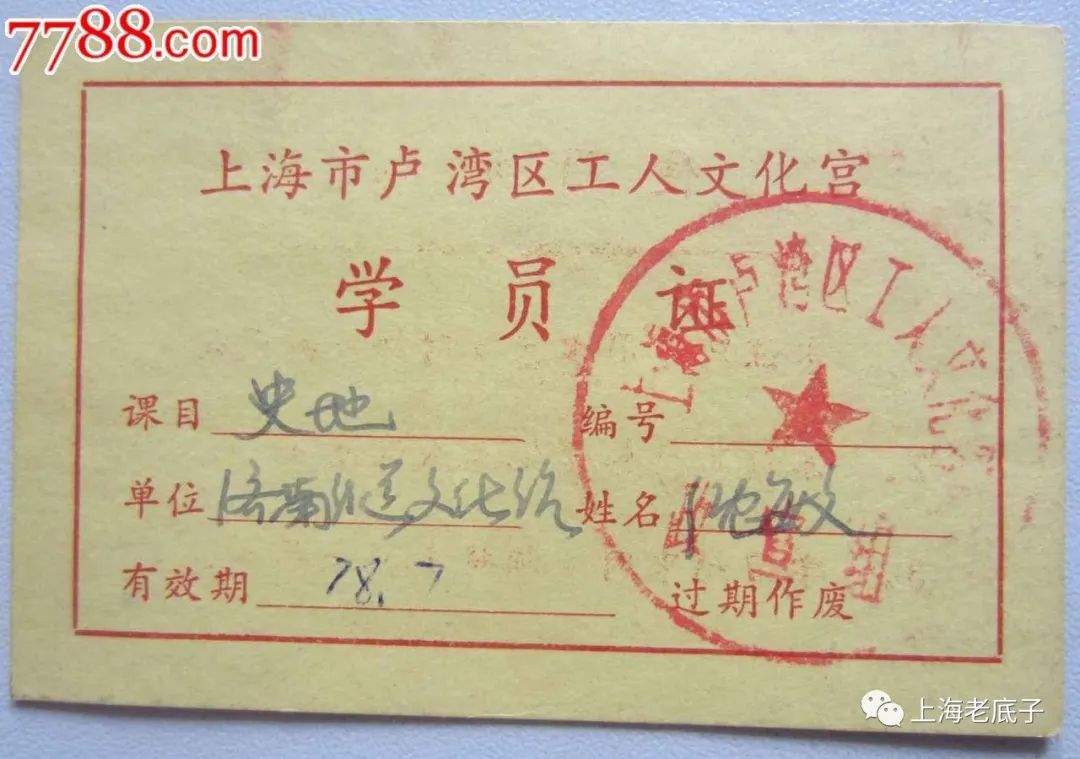 7788.com
上海市卢湾区工人文化宫
学员证
上海市卢湾区工人文化宫
课目 史地 编号
单位 济南街道文化站 姓名 敏
有效期 78.7 过期作废
上海老底子